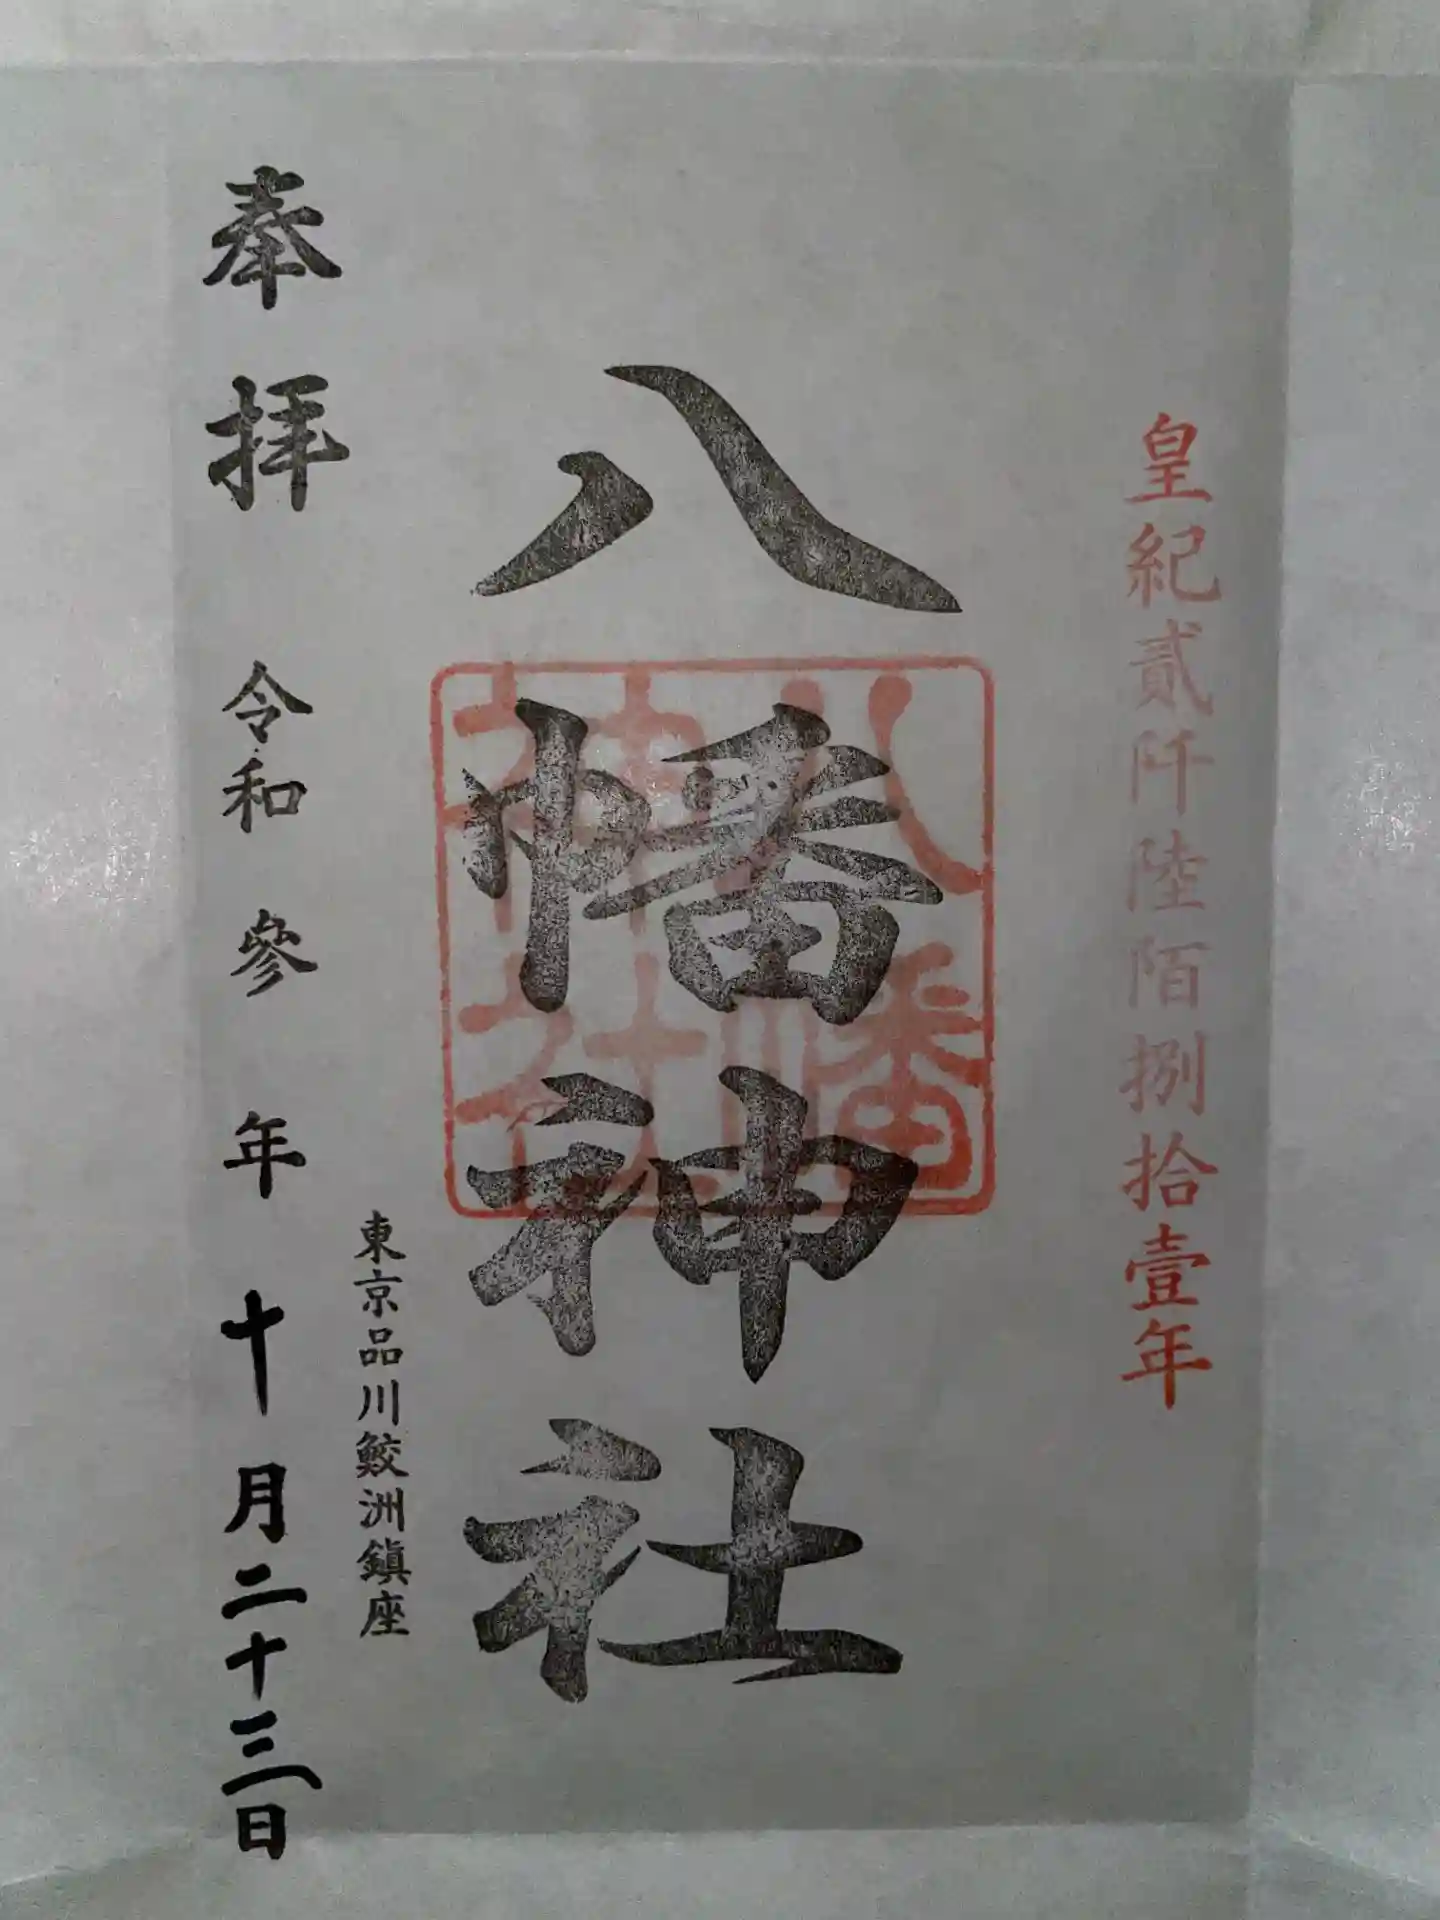 皇紀貳阡陸陌捌拾壹年
八幡神社
八幡
神社
東京品川鮫洲鎮座
奉拝 令和參年十月二十三日